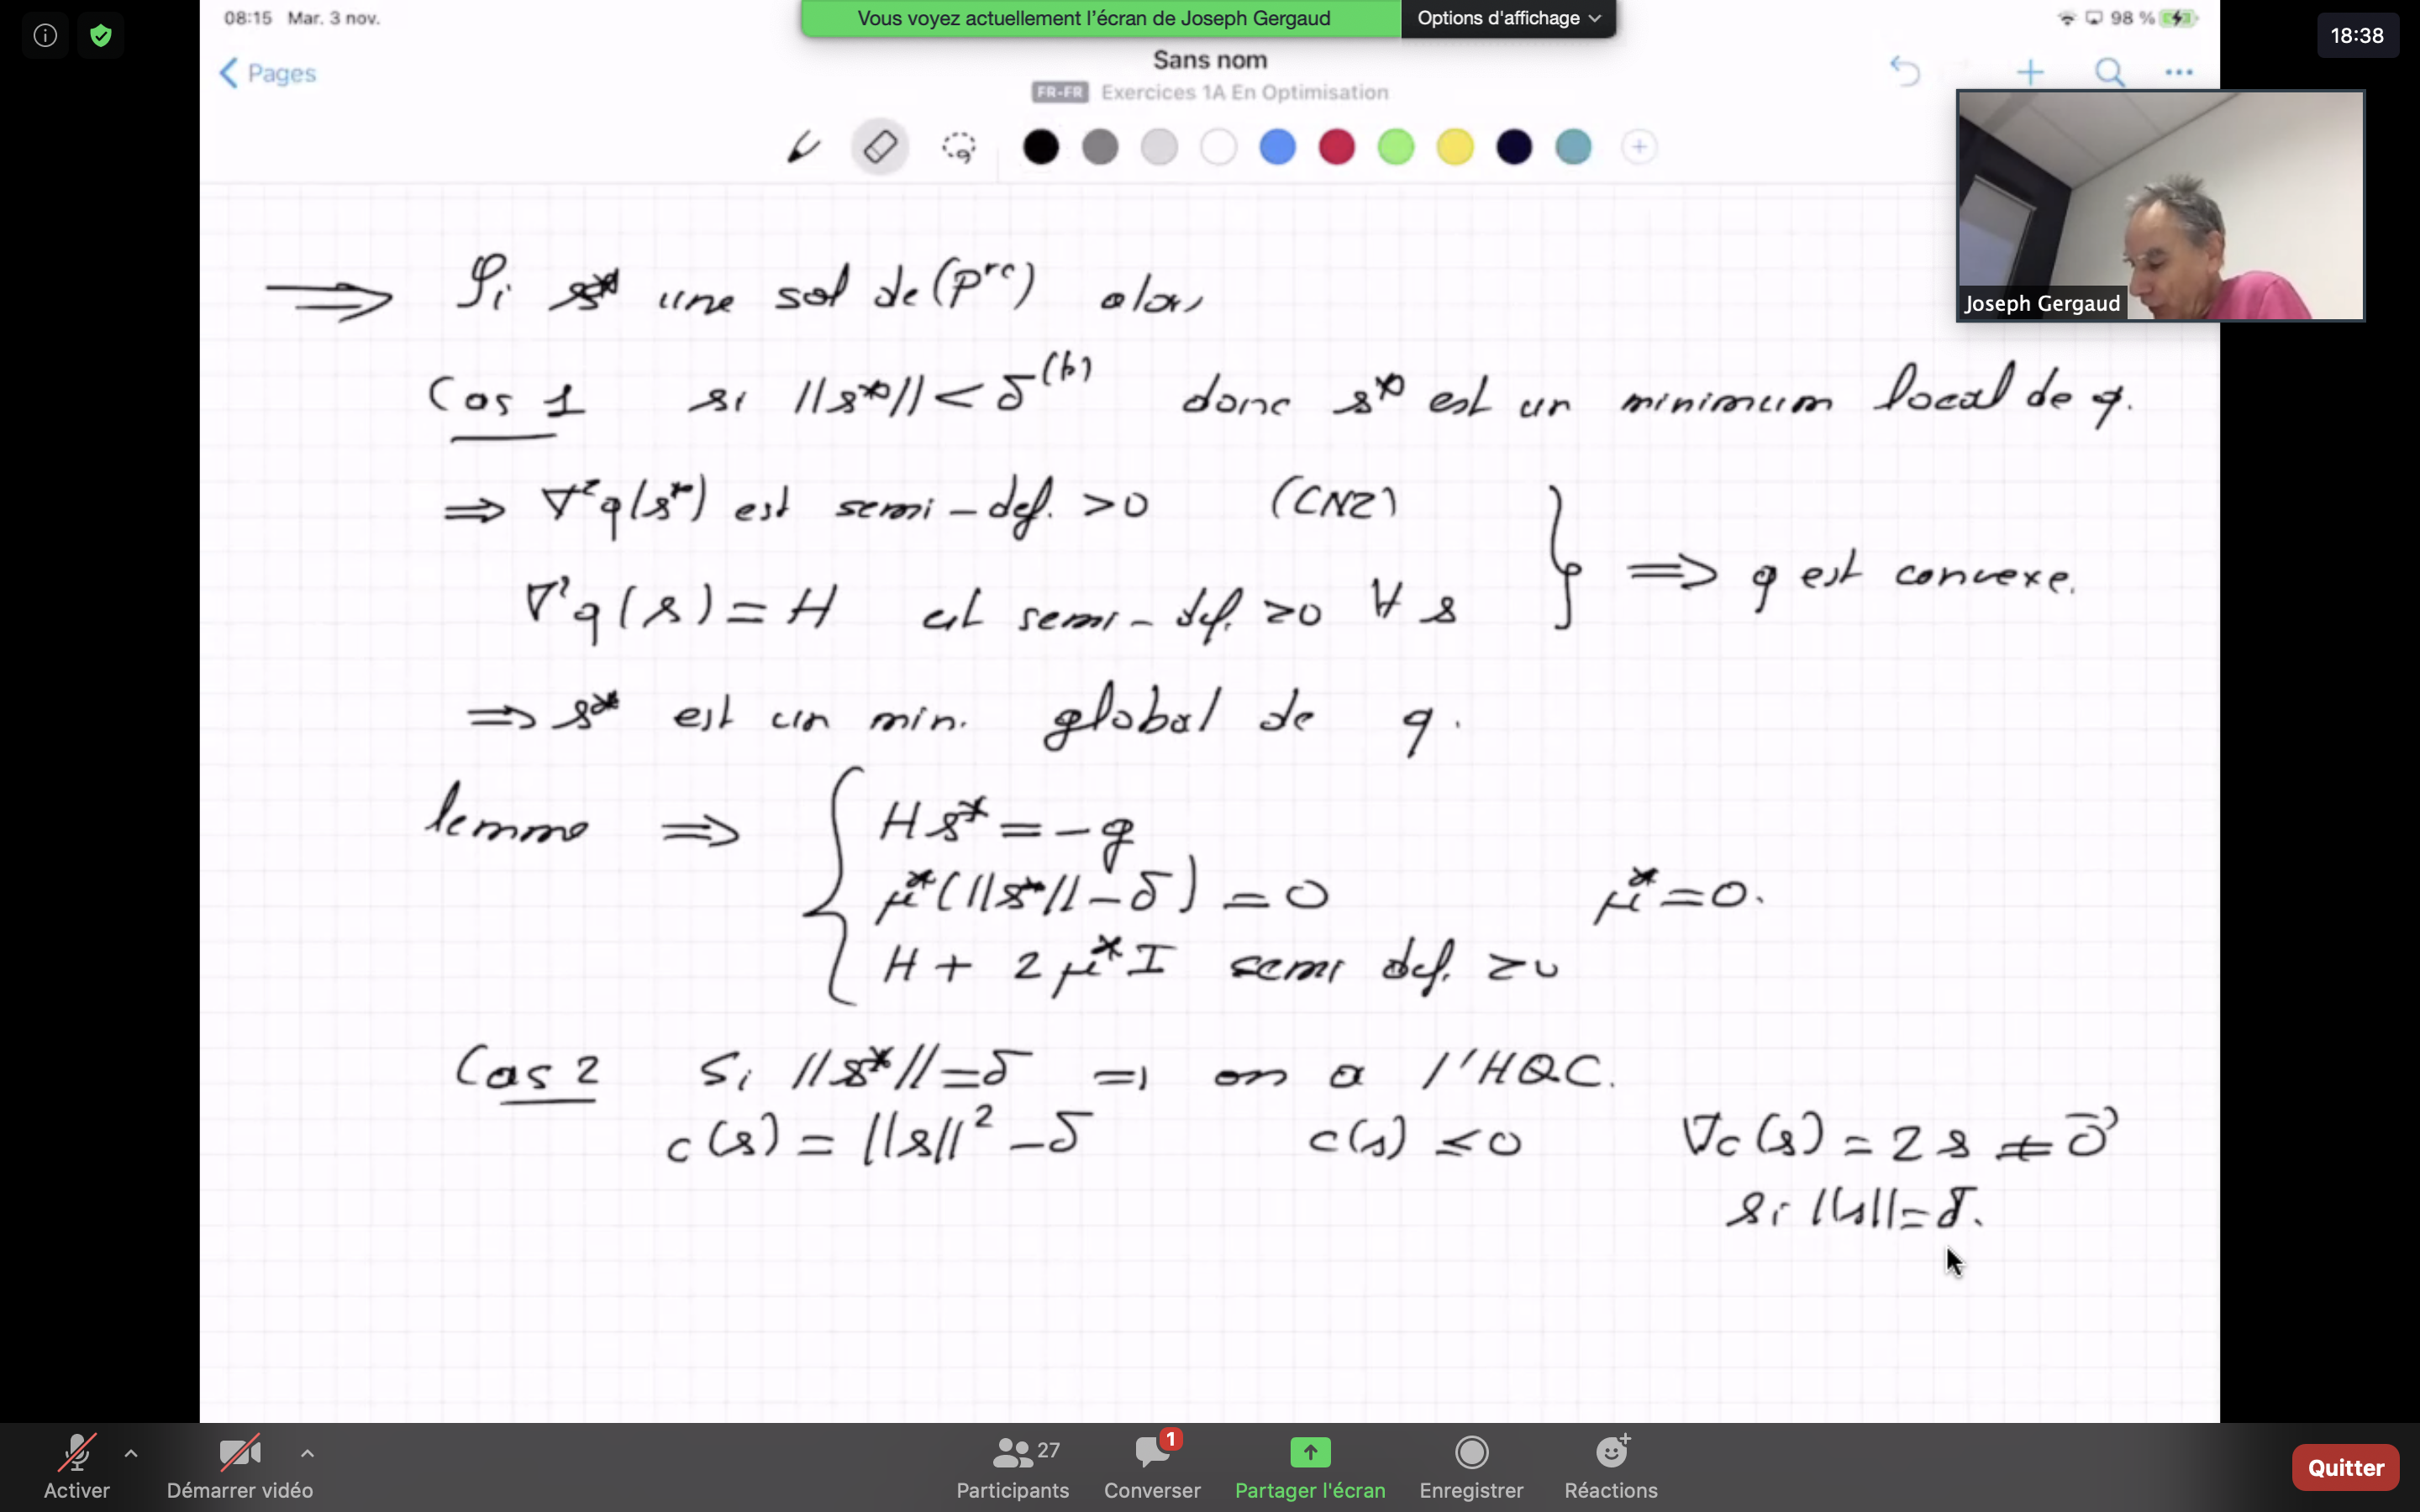 08:15 Mar. 3 nov.
Vous voyez actuellement l'écran de Joseph Gergaud
Options d'affichage
98 %
18:38
Pages
Sans nom
FR-FR Exercices 1A En Optimisation
Joseph Gergaud
⟹ Si s* une sol de (P^rc) alors
Cas 1 si ||s*|| < δ^(k) donc s* est un minimum local de q.
⟹ ∇²q(s*) est semi-def. >0 (CN2)
∇²q(s) = H est semi-def. ≥0 ∀ s } ⟹ q est convexe.
⟹ s* est un min. global de q.
lemme ⟹ { H s* = -g
μ*(||s*|| - δ) = 0 μ* = 0.
H + 2 μ* I semi def. ≥0
Cas 2 Si ||s*|| = δ ⟹ on a l'HQC.
c(s) = ||s||² - δ c(s) ≤ 0 ∇c(s) = 2 s ≠ 0⃗
si ||s|| = δ.
Activer
Démarrer vidéo
27
Participants
1
Converser
Partager l'écran
Enregistrer
Réactions
Quitter